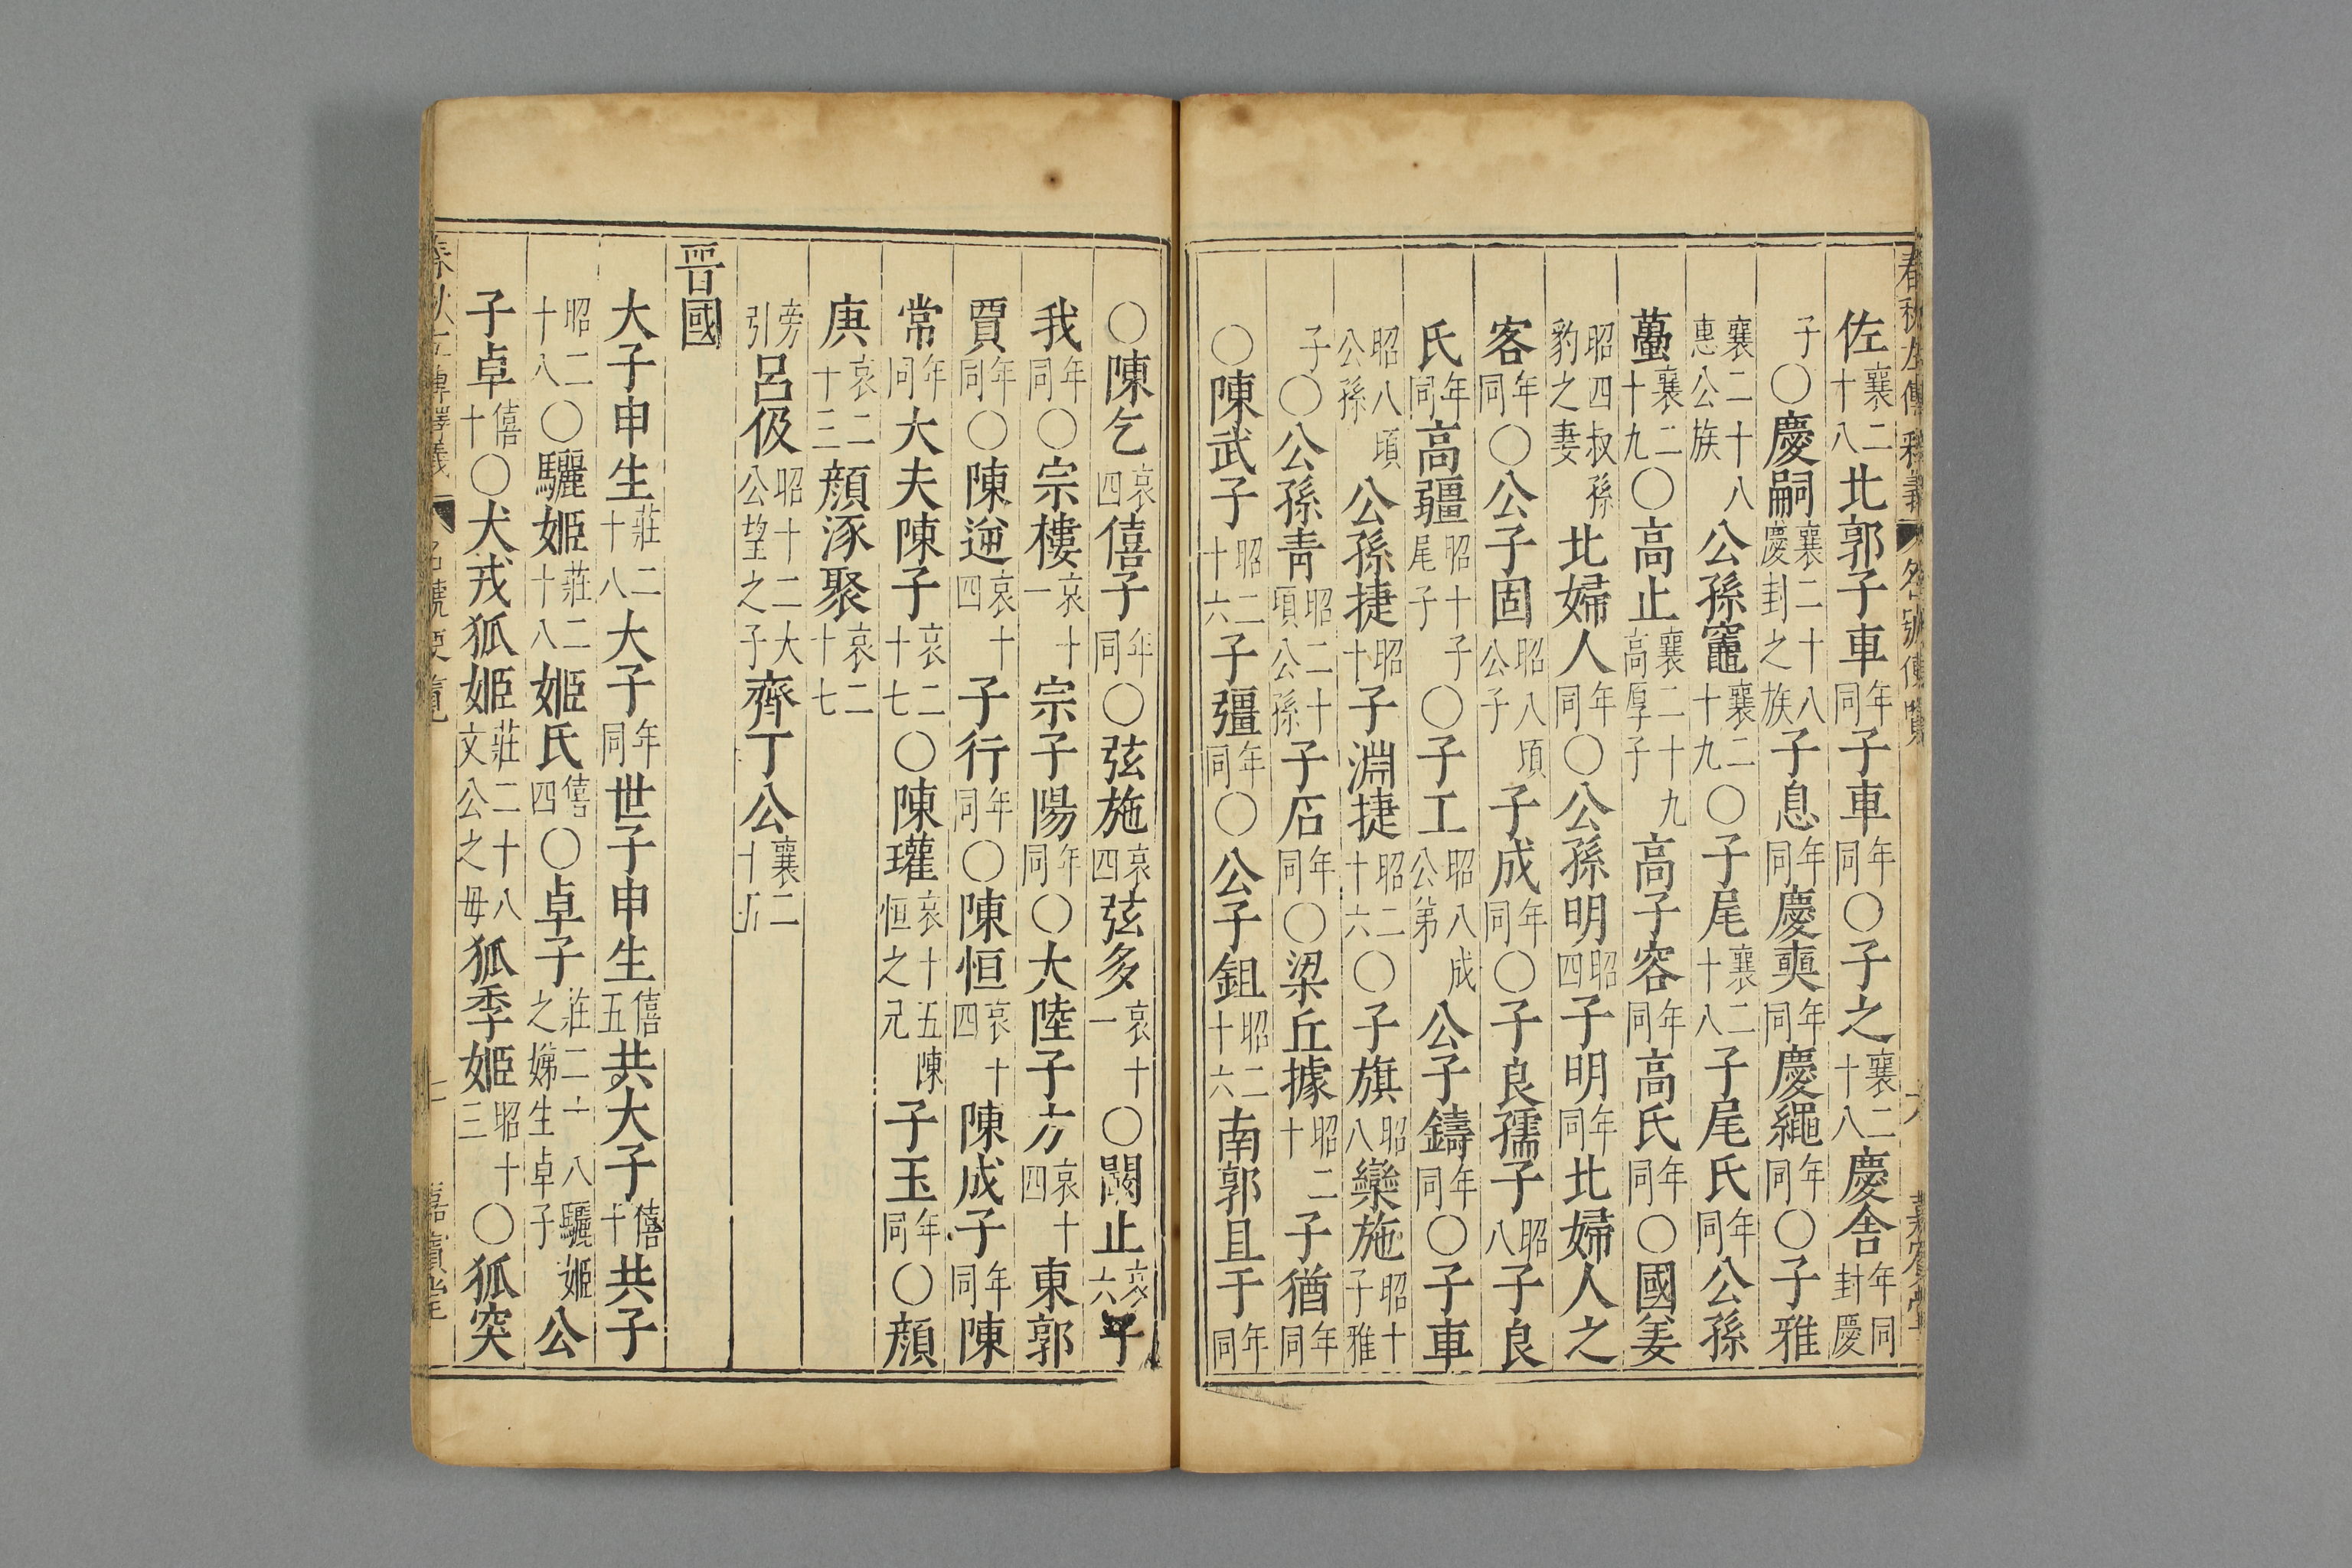 佐襄二十八北郭子車年同子車年同〇子之襄二十八慶舍年同封慶
子〇慶嗣襄二十八慶封之族子息年同慶奭年同慶繩年同〇子雅
襄二十八惠公族公孫竈襄二十九〇子尾襄二十八子尾氏年同公孫
蠆襄二十九〇高止襄二十九高厚子高子容年同高氏年同〇國姜
昭四叔孫豹之妻北婦人年同〇公孫明昭四子明年同北婦人之
客年同〇公子固昭八頃公子子成年同〇子良孺子昭八子良
氏年同高彊昭十子尾子〇子工昭八成公弟公子鑄年同〇子車
昭八頃公孫公孫捷昭十子淵捷昭二十六〇子旗昭八欒施昭十子雅
子〇公孫青昭二十頃公孫子石年同〇梁丘據昭二十子猶年同
〇陳武子昭二十六子彊年同〇公子鉏昭二十六南郭且于年同
〇陳乞哀四僖子年同〇弦施哀四弦多哀十一〇闞止哀六
我年同〇宗樓哀十一宗子陽年同〇大陸子方哀十四東郭
賈年同〇陳逆哀十四子行年同〇陳恒哀十四陳成子年同陳
常年同大夫陳子哀二十七〇陳瓘哀十五陳恒之兄子玉年同〇顏
庚哀二十三顏涿聚哀二十七
旁引呂伋昭十二大公望之子齊丁公襄二十
晉國
大子申生莊二十八大子年同世子申生僖五共大子僖十共子
昭二十八〇驪姬莊二十八姬氏僖四〇卓子莊二十八驪姬之娣生卓子公
子卓僖十〇犬戎狐姬莊二十八文公之母狐季姬昭十三〇狐突